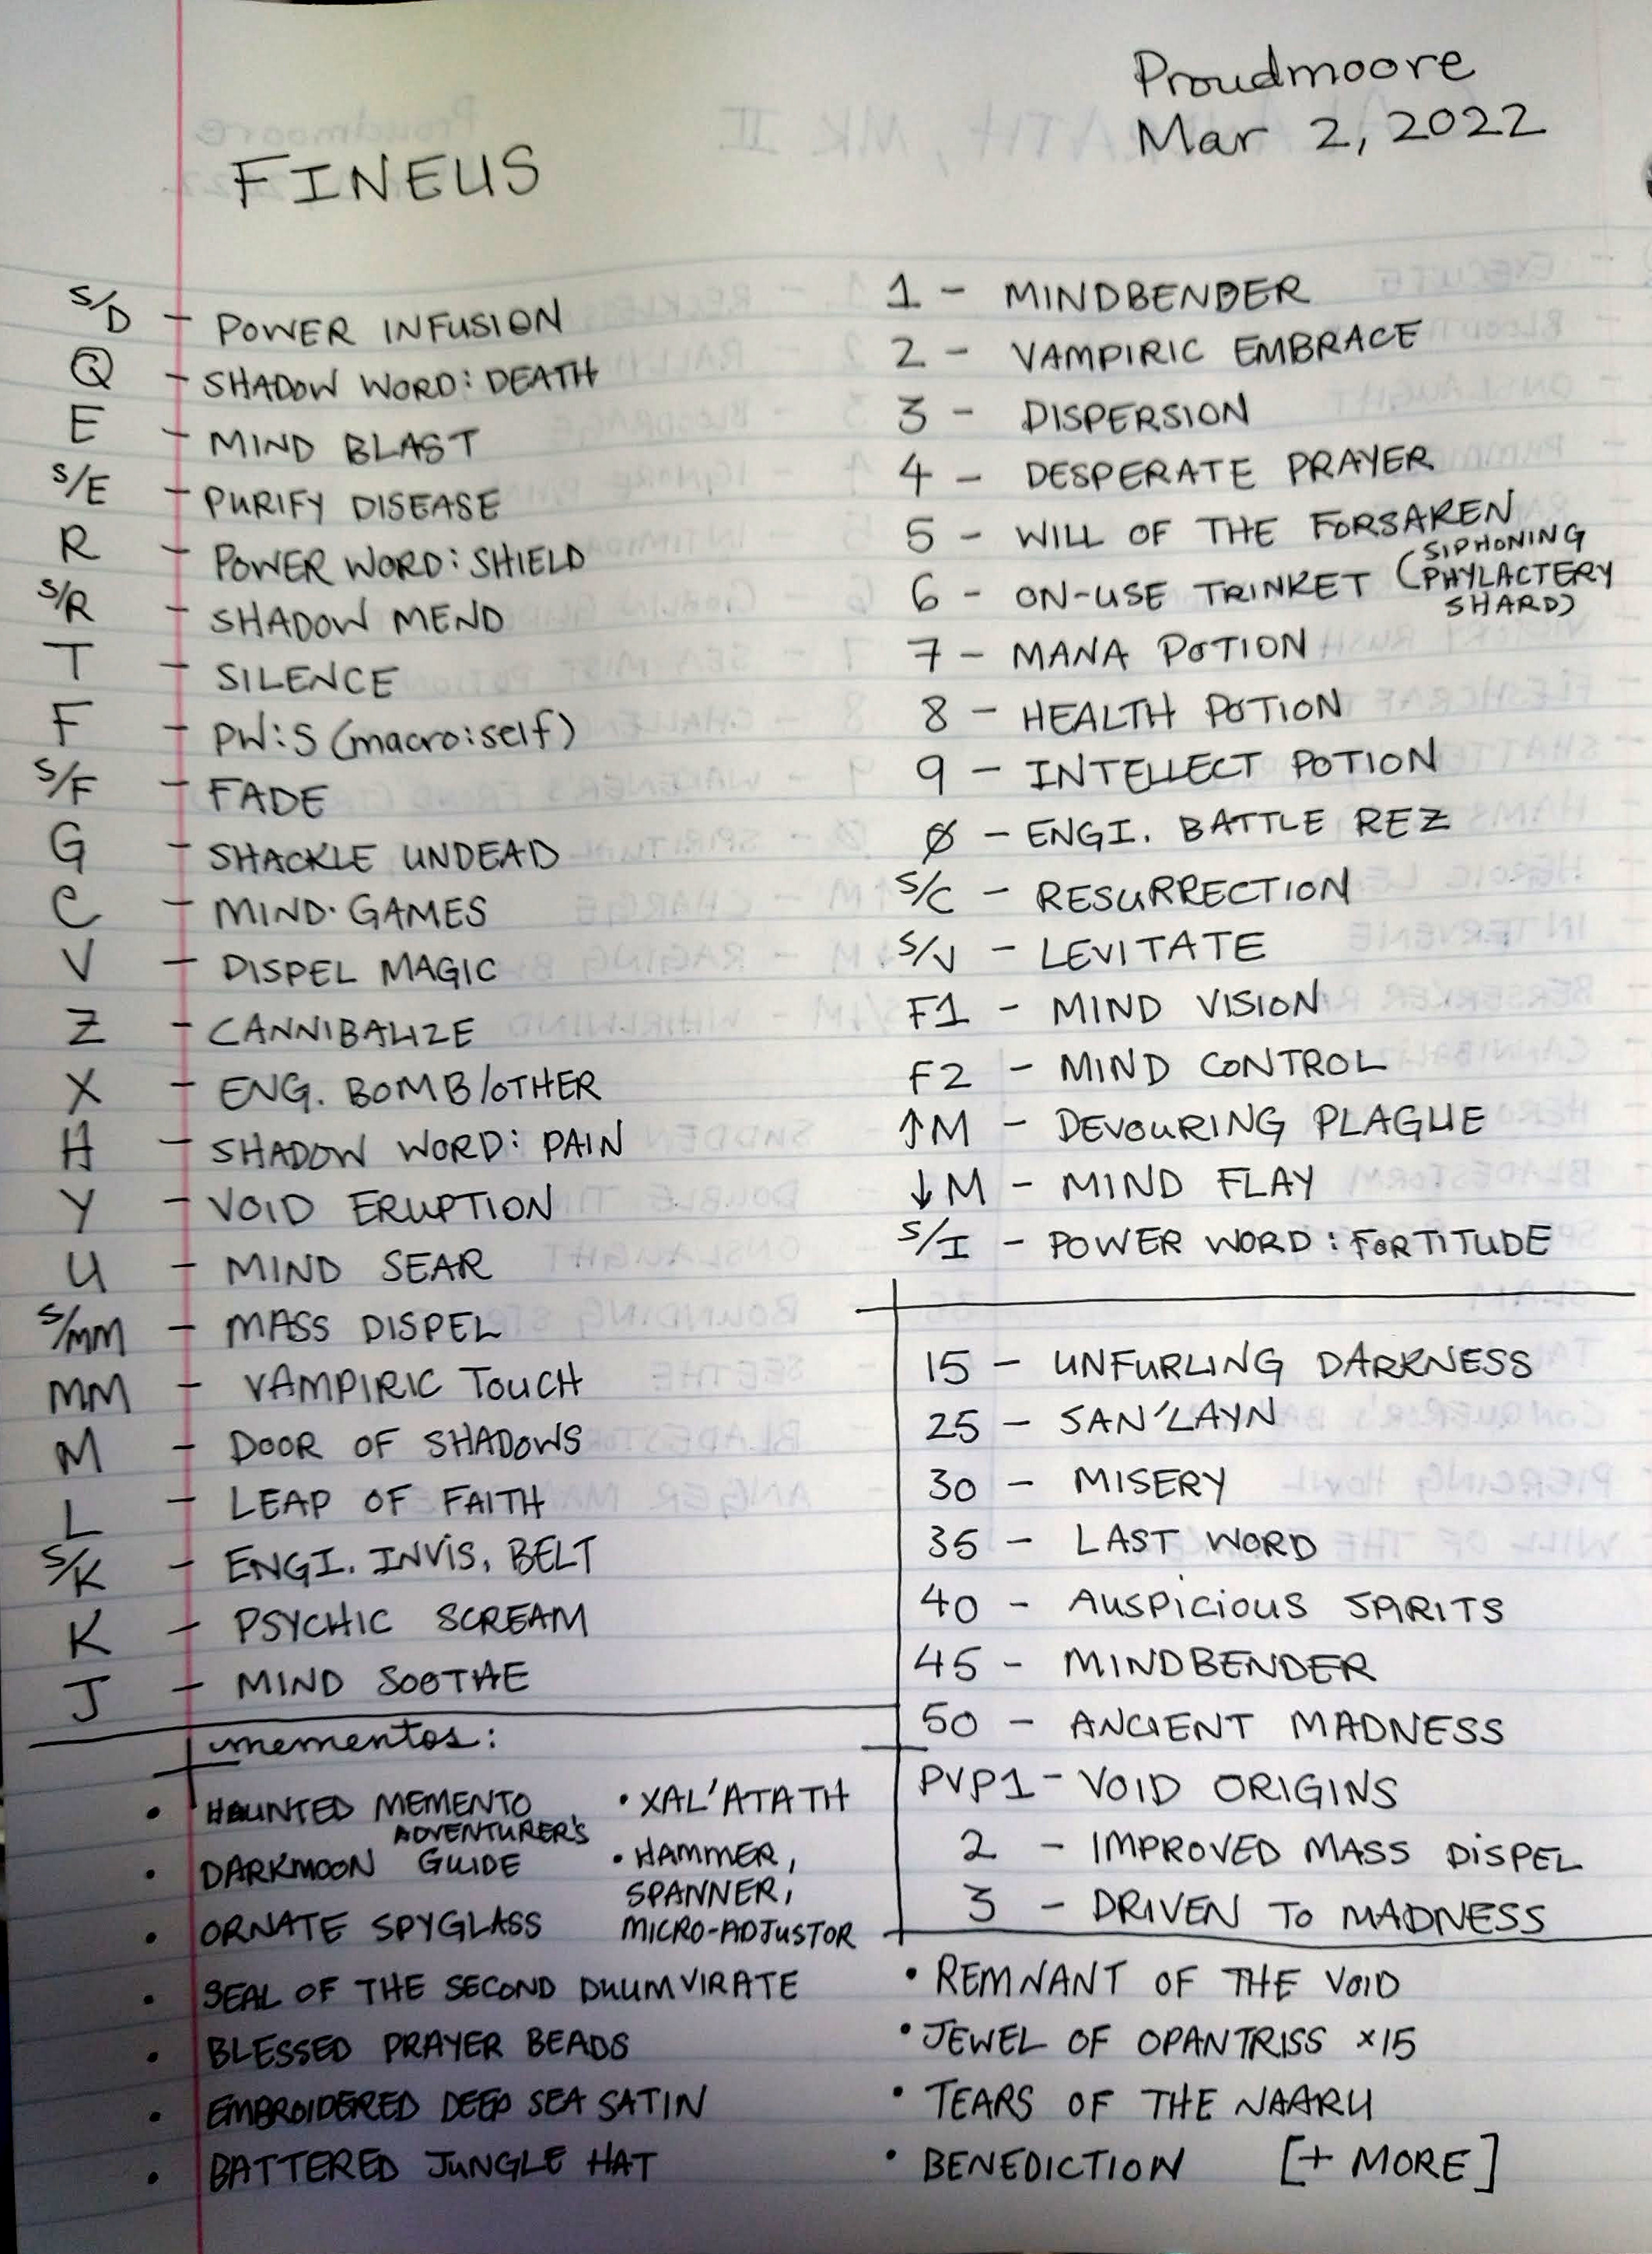 Proudmoore
Mar 2, 2022
FINEUS
S/D - POWER INFUSION
Q - SHADOW WORD: DEATH
E - MIND BLAST
S/E - PURIFY DISEASE
R - POWER WORD: SHIELD
S/R - SHADOW MEND
T - SILENCE
F - PW:S (macro: self)
S/F - FADE
G - SHACKLE UNDEAD
C - MIND·GAMES
V - DISPEL MAGIC
Z - CANNIBALIZE
X - ENG. BOMB/OTHER
H - SHADOW WORD: PAIN
Y - VOID ERUPTION
U - MIND SEAR
S/MM - MASS DISPEL
MM - VAMPIRIC TOUCH
M - DOOR OF SHADOWS
L - LEAP OF FAITH
S/K - ENGI. INVIS. BELT
K - PSYCHIC SCREAM
J - MIND SOOTHE
1 - MINDBENDER
2 - VAMPIRIC EMBRACE
3 - DISPERSION
4 - DESPERATE PRAYER
5 - WILL OF THE FORSAKEN
6 - ON-USE TRINKET (SIPHONING
PHYLACTERY
SHARD)
7 - MANA POTION
8 - HEALTH POTION
9 - INTELLECT POTION
Ø - ENGI. BATTLE REZ
S/C - RESURRECTION
S/V - LEVITATE
F1 - MIND VISION
F2 - MIND CONTROL
↑M - DEVOURING PLAGUE
↓M - MIND FLAY
S/I - POWER WORD: FORTITUDE
15 - UNFURLING DARKNESS
25 - SAN'LAYN
30 - MISERY
35 - LAST WORD
40 - AUSPICIOUS SPIRITS
45 - MINDBENDER
50 - ANCIENT MADNESS
PVP1 - VOID ORIGINS
2 - IMPROVED MASS DISPEL
3 - DRIVEN TO MADNESS
mementos:
• HAUNTED MEMENTO
• DARKMOON ADVENTURER'S GUIDE
• ORNATE SPYGLASS
• XAL'ATATH
• HAMMER,
SPANNER,
MICRO-ADJUSTOR
• SEAL OF THE SECOND DUUMVIRATE
• BLESSED PRAYER BEADS
• EMBROIDERED DEEP SEA SATIN
• BATTERED JUNGLE HAT
• REMNANT OF THE VOID
• JEWEL OF OPANTRISS x15
• TEARS OF THE NAARU
• BENEDICTION [+ MORE]